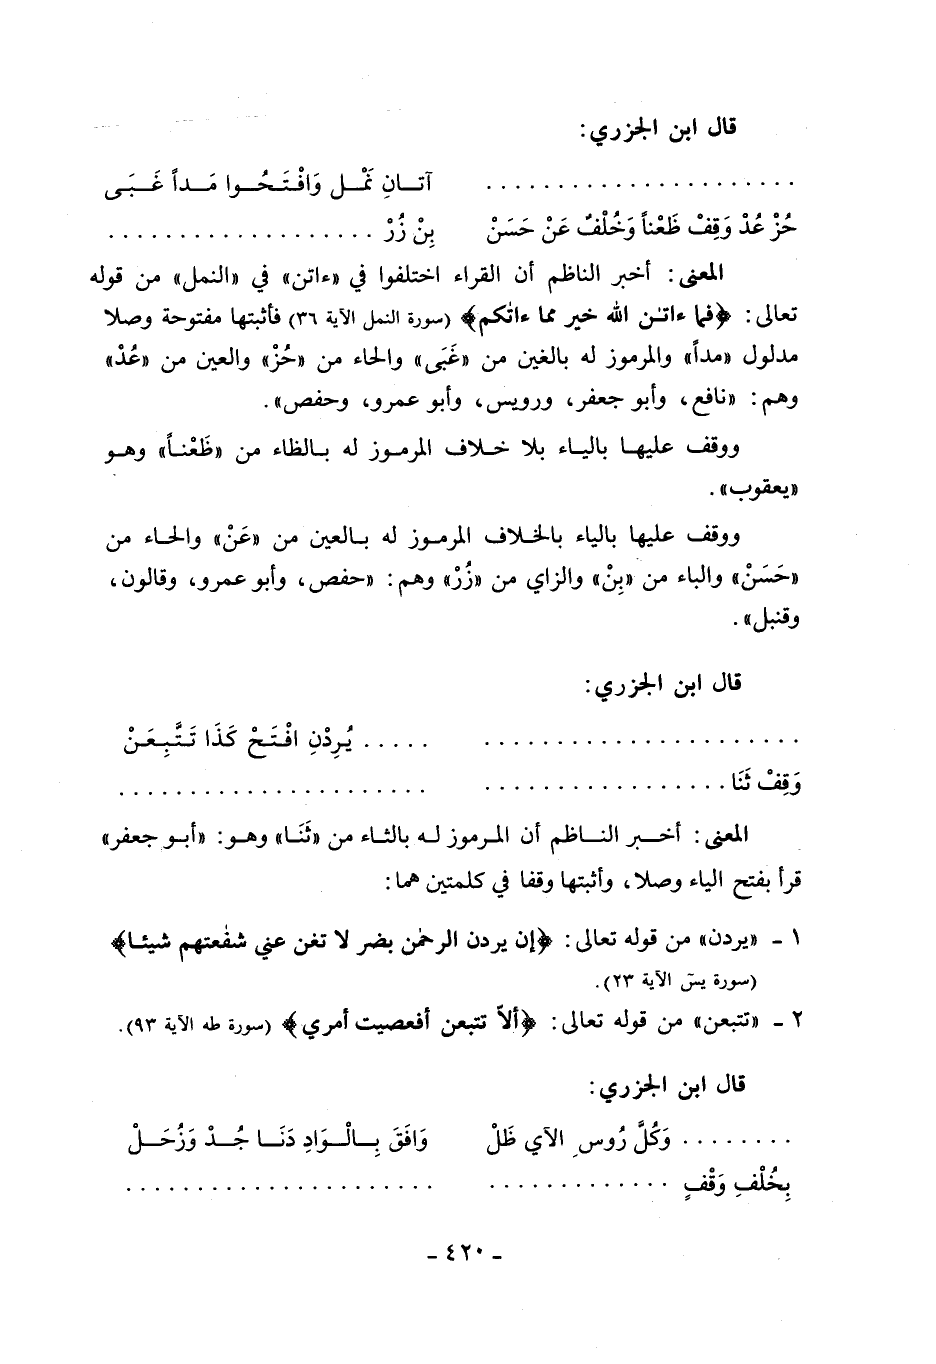 قال ابن الجزري:
. . . . . . . . . . . . . . . . . . . . . . آتــانِ نَمْــل وَافْتَحُــوا مَــداً غَبَــى
حُزْ عُدْ وَقِفْ ظَعْناً وَخُلْفٌ عَنْ حَسَنْ بِنْ زُرْ . . . . . . . . . . . . . . . . . . .
المعنى: أخبر الناظم أن القراء اختلفوا في «ءاتن» في «النمل» من قوله
تعالى: ﴿فما ءاتـٰن الله خير مما ءاتٰكم﴾ (سورة النمل الآية ٣٦) فأثبتها مفتوحة وصلا
مدلول «مداً» والمرموز له بالغين من «غَبَى» والحاء من «حُزْ» والعين من «عُدْ»
وهم: «نافع، وأبو جعفر، ورويس، وأبو عمرو، وحفص».
ووقف عليها بالياء بلا خلاف المرموز له بالظاء من «ظَعْناً» وهو
«يعقوب».
ووقف عليها بالياء بالخلاف المرموز له بالعين من «عَنْ» والحاء من
«حَسَنْ» والباء من «بِنْ» والزاي من «زُرْ» وهم: «حفص، وأبو عمرو، وقالون،
وقنبل».
قال ابن الجزري:
. . . . . . . . . . . . . . . . . . . . . . . . . . . يُرِدْنِ افْتَحْ كَذَا تَتَّبِعَنْ
وَقِفْ ثَنَا . . . . . . . . . . . . . . . . . . . . . . . . . . . . . . . . . . . . . . .
المعنى: أخبر الناظم أن المرموز له بالثاء من «ثَنَا» وهو: «أبو جعفر»
قرأ بفتح الياء وصلا، وأثبتها وقفا في كلمتين هما:
١ - «يردن» من قوله تعالى: ﴿إن يردن الرحمٰن بضر لا تغن عني شفٰعتهم شيئا﴾
(سورة يسۤ الآية ٢٣).
٢ - «تتبعن» من قوله تعالى: ﴿ألاّ تتبعن أفعصيت أمري﴾ (سورة طه الآية ٩٣).
قال ابن الجزري:
. . . . . . . . وَكُلَّ رُوسِ الآي ظَلْ وَافَقَ بِــالْــوَادِ دَنَــا جُــدْ وَزُحَــلْ
بِخُلْفِ وَقْفٍ . . . . . . . . . . . . . . . . . . . . . . . . . . . . . . . . . . .
- ٤٢٠ -